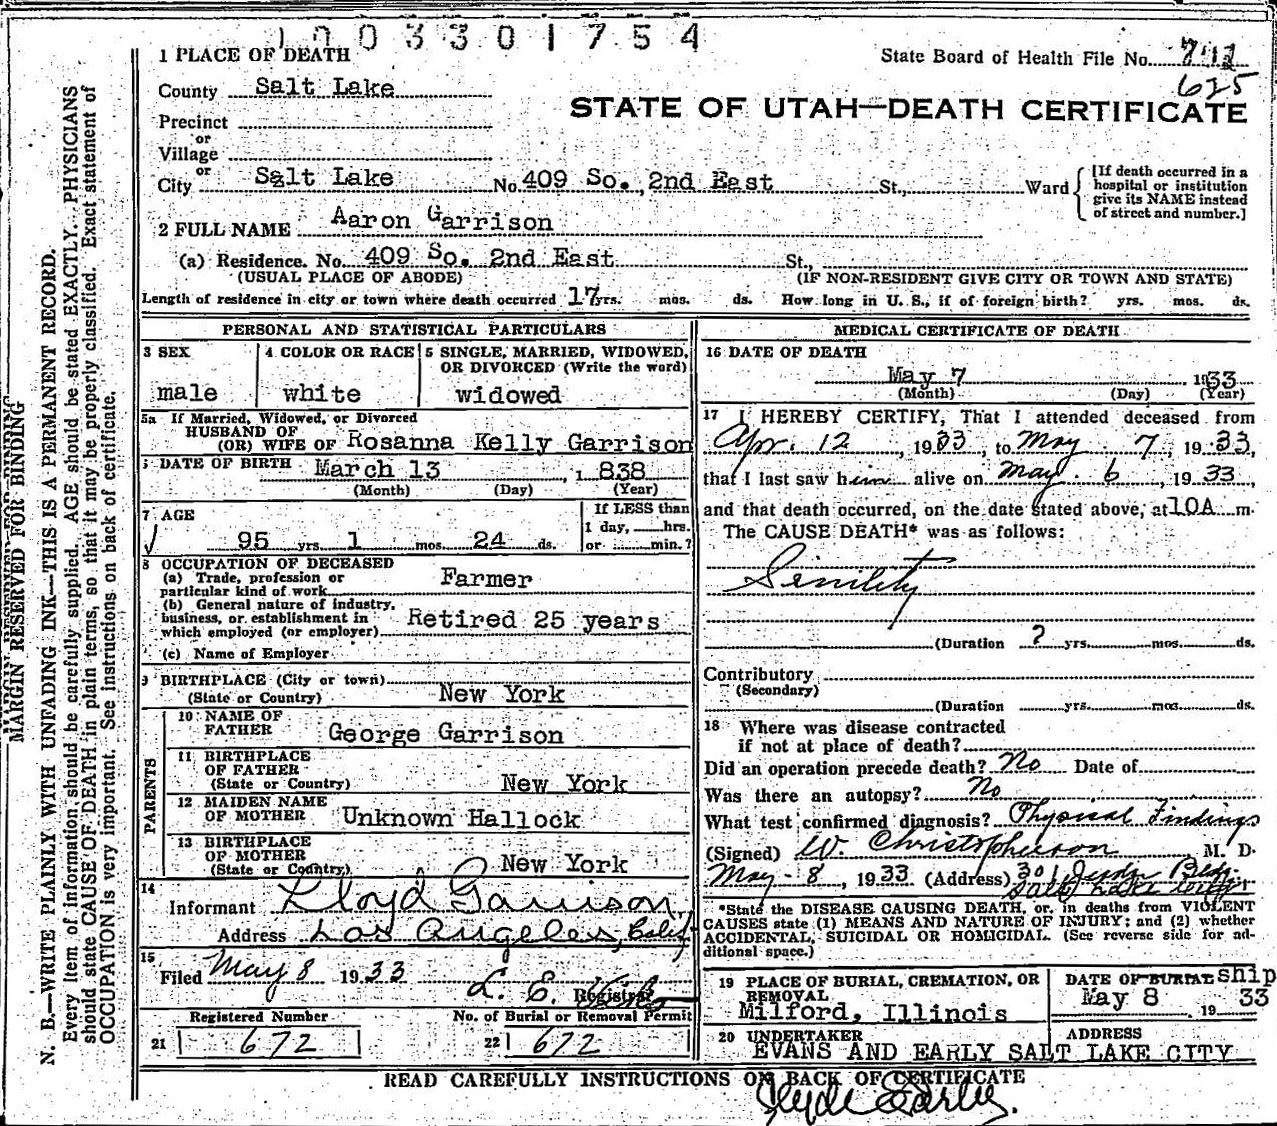 1003301754
1 PLACE OF DEATH
State Board of Health File No. 712
625
County Salt Lake
STATE OF UTAH—DEATH CERTIFICATE
Precinct
or
Village
or
City Salt Lake No 409 So. 2nd East St., Ward
[If death occurred in a
hospital or institution
give its NAME instead
of street and number.]
2 FULL NAME Aaron Garrison
(a) Residence. No. 409 So. 2nd East St.,
(USUAL PLACE OF ABODE) (IF NON-RESIDENT GIVE CITY OR TOWN AND STATE)
Length of residence in city or town where death occurred 17 yrs. mos. ds. How long in U. S., if of foreign birth? yrs. mos. ds.
PERSONAL AND STATISTICAL PARTICULARS
3 SEX
male
4 COLOR OR RACE
white
5 SINGLE, MARRIED, WIDOWED,
OR DIVORCED (Write the word)
widowed
5a If Married, Widowed, or Divorced
HUSBAND OF
(OR) WIFE OF Rosanna Kelly Garrison
DATE OF BIRTH March 13, 1838
(Month) (Day) (Year)
7 AGE
95 yrs. 1 mos. 24 ds.
If LESS than
1 day, hrs.
or min.?
8 OCCUPATION OF DECEASED
(a) Trade, profession or
particular kind of work Farmer
(b) General nature of industry,
business, or establishment in
which employed (or employer) Retired 25 years
(c) Name of Employer
9 BIRTHPLACE (City or town)
(State or Country) New York
PARENTS
10 NAME OF
FATHER George Garrison
11 BIRTHPLACE
OF FATHER
(State or Country) New York
12 MAIDEN NAME
OF MOTHER Unknown Hallock
13 BIRTHPLACE
OF MOTHER
(State or Country) New York
14
Informant Lloyd Garrison
Address Los Angeles, Calif
15
Filed May 8 1933 L. E.
Registrar
Registered Number
21 672
No. of Burial or Removal Permit
22 672
MEDICAL CERTIFICATE OF DEATH
16 DATE OF DEATH
May 7 1933
(Month) (Day) (Year)
17 I HEREBY CERTIFY, That I attended deceased from
Apr. 12, 1933, to May 7, 1933,
that I last saw him alive on May 6, 1933,
and that death occurred, on the date stated above, at 10A m.
The CAUSE DEATH* was as follows:
Senility
(Duration ? yrs. mos. ds.
Contributory
(Secondary)
(Duration yrs. mos. ds.
18 Where was disease contracted
if not at place of death?
Did an operation precede death? No Date of
Was there an autopsy? No
What test confirmed diagnosis? Physical Findings
(Signed) W. Christopherson M. D.
May - 8, 1933 (Address) 301 Bldg.
Salt Lake
*State the DISEASE CAUSING DEATH, or, in deaths from VIOLENT
CAUSES state (1) MEANS AND NATURE OF INJURY; and (2) whether
ACCIDENTAL, SUICIDAL OR HOMICIDAL. (See reverse side for ad-
ditional space.)
19 PLACE OF BURIAL, CREMATION, OR
REMOVAL
Milford, Illinois
DATE OF BURIAL ship
May 8 1933
20 UNDERTAKER ADDRESS
EVANS AND EARLY SALT LAKE CITY
READ CAREFULLY INSTRUCTIONS ON BACK OF CERTIFICATE
Clyde Early.
MARGIN RESERVED FOR BINDING
N. B.—WRITE PLAINLY WITH UNFADING INK—THIS IS A PERMANENT RECORD.
Every item of information should be carefully supplied. AGE should be stated EXACTLY. PHYSICIANS
should state CAUSE OF DEATH in plain terms, so that it may be properly classified. Exact statement of
OCCUPATION is very important. See instructions on back of certificate.